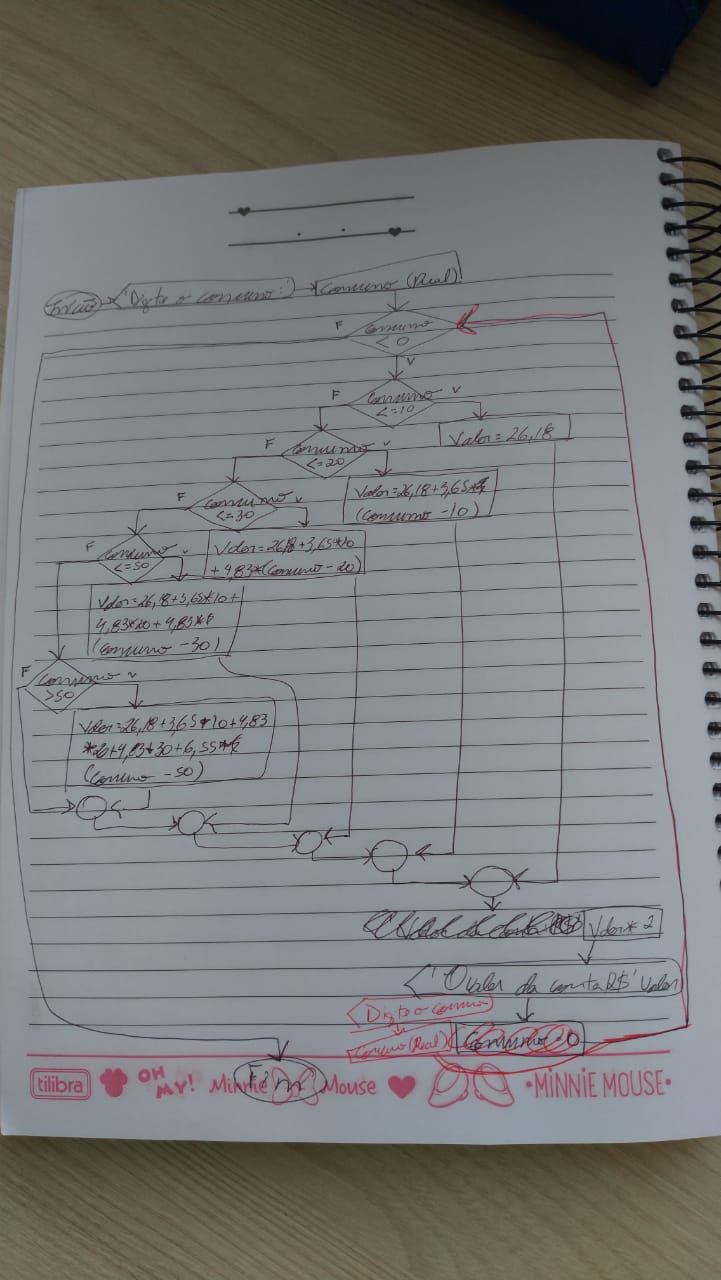 Início
'Digite o consumo:'
Consumo (Real)
F
Consumo
< 0
V
F
Consumo
<=10
V
Valor = 26,18
F
Consumo
<=20
V
Valor=26,18+3,65*
(Consumo -10)
F
Consumo
<=30
V
Valor=26,18+3,65*10
+4,83*(Consumo-20)
F
Consumo
<=50
V
Valor=26,18+3,65*10+
4,83*20+4,83*
(Consumo -30)
F
Consumo
>50
V
Valor=26,18+3,65*10+4,83
*20+4,83*30+6,55*
(Consumo -50)
Valor * 2
'O valor da conta R$' Valor
Digite o consumo
Consumo (Real)
Consumo 0
Fim
tilibra
OH MY!
Minnie Mouse
•MiNNiE MOUSE•